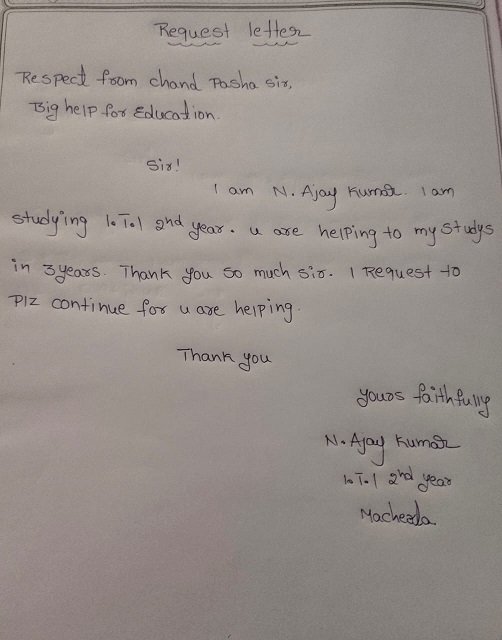 Request letter
Respect from chand Pasha sir,
Big help for Education.
Sir!
I am N. Ajay Kumar. I am
studying I.T.I 2nd year. u are helping to my studys
in 3years. Thank you so much sir. I Request to
Plz continue for u are helping.
Thank you
yours faithfully
N. Ajay Kumar
I.T.I 2nd year
Macherla